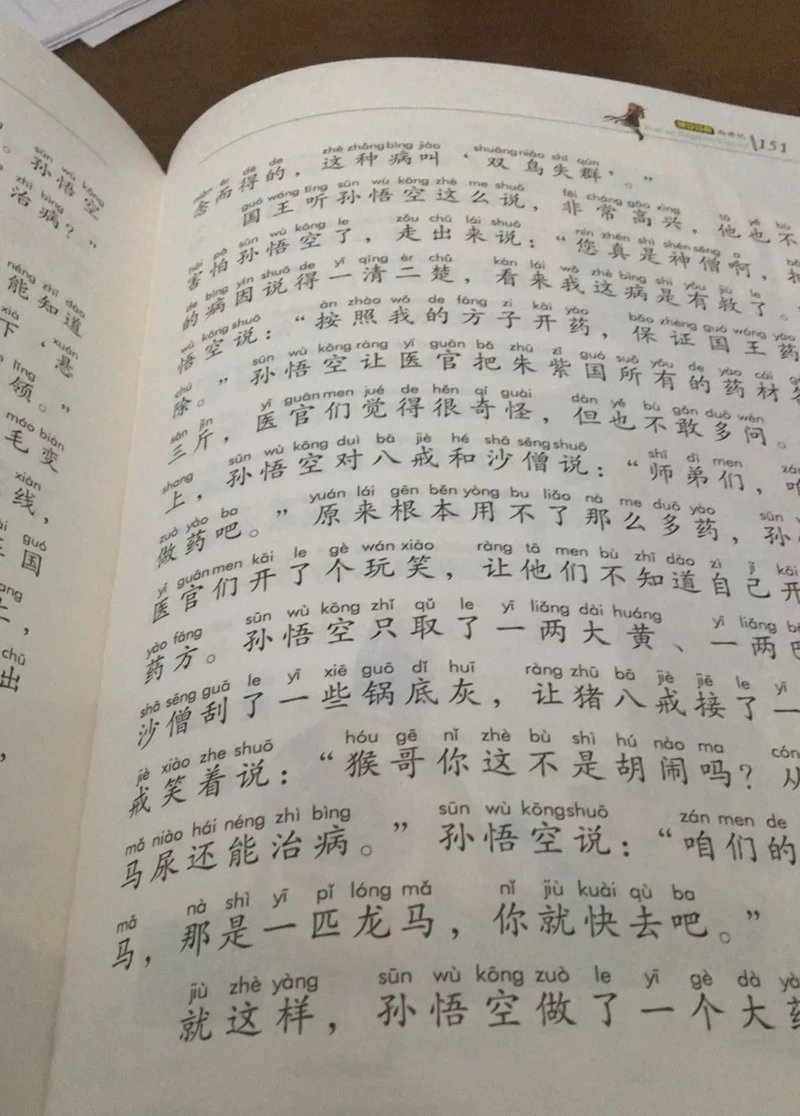 sūn wù kōng
。孙悟空
zhì bìng
治病?”
néng zhī dào
能知道
xià xuán
下‘悬
lǐng
领。”
máo biàn
毛变
xiàn
线，
guó
国
chū
出
151
ér dé de zhè zhǒng bìng jiào shuāng niǎo shī qún
念而得的，这种病叫‘双鸟失群’。”
guó wáng tīng sūn wù kōng zhè me shuō fēi cháng gāo xìng tā yě bù
国王听孙悟空这么说，非常高兴，他也不
hài pà sūn wù kōng le zǒu chū lái shuō nín zhēn shì shén sēng a
害怕孙悟空了，走出来说：“您真是神僧啊，
de bìng yīn shuō de yī qīng èr chǔ kàn lái wǒ zhè bìng shì yǒu jiù le
的病因说得一清二楚，看来我这病是有救了。
wù kōng shuō àn zhào wǒ de fāng zi kāi yào bǎo zhèng guó wáng yào
悟空说：“按照我的方子开药，保证国王药
chú sūn wù kōng ràng yī guān bǎ zhū zǐ guó suǒ yǒu de yào cái
除。”孙悟空让医官把朱紫国所有的药材
sān jīn yī guān men jué de hěn qí guài dàn yě bù gǎn duō wèn
三斤，医官们觉得很奇怪，但也不敢多问。
shang sūn wù kōng duì bā jiè hé shā sēng shuō shī dì men
上，孙悟空对八戒和沙僧说：“师弟们，
zuò yào ba yuán lái gēn běn yòng bu liǎo nà me duō yào sūn
做药吧。”原来根本用不了那么多药，孙
yī guān men kāi le gè wán xiào ràng tā men bù zhī dào zì jǐ kāi
医官们开了个玩笑，让他们不知道自己开
yào fāng sūn wù kōng zhǐ qǔ le yī liǎng dài huáng yī liǎng bā
药方。孙悟空只取了一两大黄、一两巴
shā sēng guā le yī xiē guō dǐ huī ràng zhū bā jiè jiē le yī
沙僧刮了一些锅底灰，让猪八戒接了一
jiè xiào zhe shuō hóu gē nǐ zhè bù shì hú nào ma cón
戒笑着说：“猴哥你这不是胡闹吗？从
mǎ niào hái néng zhì bìng sūn wù kōng shuō zán men de
马尿还能治病。”孙悟空说：“咱们的
mǎ nà shì yī pǐ lóng mǎ nǐ jiù kuài qù ba
马，那是一匹龙马，你就快去吧。”
jiù zhè yàng sūn wù kōng zuò le yī gè dà yà
就这样，孙悟空做了一个大药